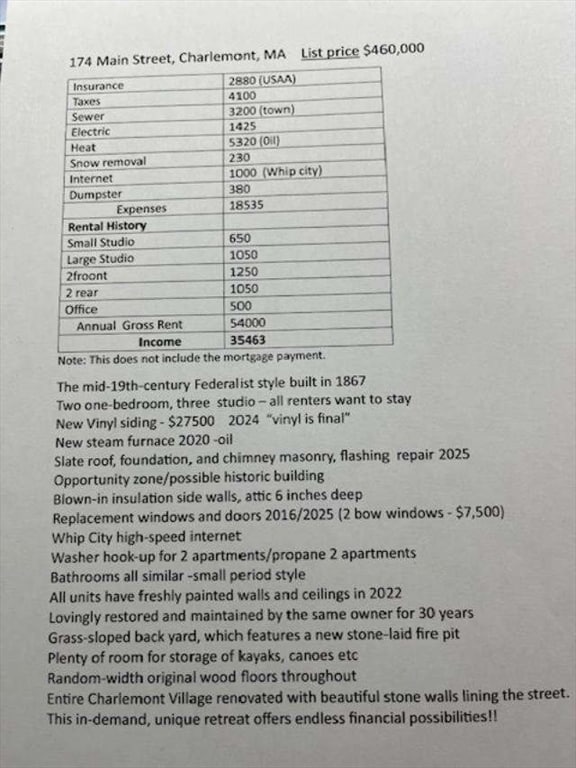 174 Main Street, Charlemont, MA List price $460,000
Insurance 2880 (USAA)
Taxes 4100
Sewer 3200 (town)
Electric 1425
Heat 5320 (Oil)
Snow removal 230
Internet 1000 (Whip city)
Dumpster 380
Expenses 18535
Rental History
Small Studio 650
Large Studio 1050
2froont 1250
2 rear 1050
Office 500
Annual Gross Rent 54000
Income 35463
Note: This does not include the mortgage payment.
The mid-19th-century Federalist style built in 1867
Two one-bedroom, three studio – all renters want to stay
New Vinyl siding - $27500 2024 "vinyl is final"
New steam furnace 2020 -oil
Slate roof, foundation, and chimney masonry, flashing repair 2025
Opportunity zone/possible historic building
Blown-in insulation side walls, attic 6 inches deep
Replacement windows and doors 2016/2025 (2 bow windows - $7,500)
Whip City high-speed internet
Washer hook-up for 2 apartments/propane 2 apartments
Bathrooms all similar -small period style
All units have freshly painted walls and ceilings in 2022
Lovingly restored and maintained by the same owner for 30 years
Grass-sloped back yard, which features a new stone-laid fire pit
Plenty of room for storage of kayaks, canoes etc
Random-width original wood floors throughout
Entire Charlemont Village renovated with beautiful stone walls lining the street.
This in-demand, unique retreat offers endless financial possibilities!!